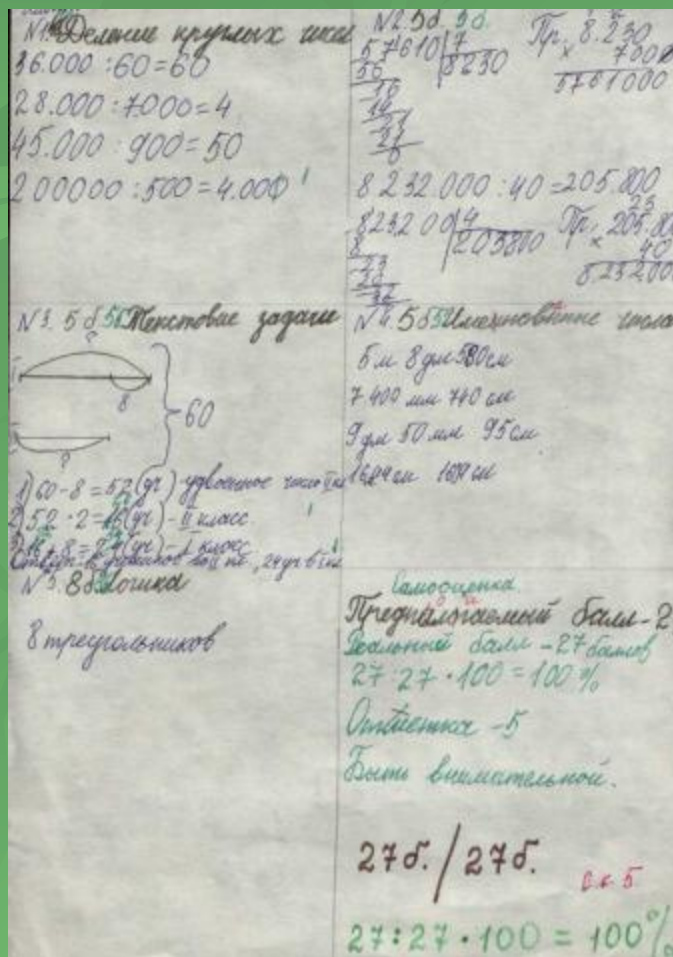 №1 Деление круглых чисел
36.000 : 60 = 60
28.000 : 7000 = 4
45.000 : 900 = 50
200000 : 500 = 4.000
№2. 5б. 5б.
57610 7
56 8230
16
14
21
21
0
Пр. 8.230
× 7000
5761000
8232.000 : 40 = 205.800
823200 4
8 205800
23
20
32
Пр. 205.80
× 40
8.23200
№3. 5б 5б Текстовые задачи
?
I
8
60
II
?
1) 60 - 8 = 52 (уч) - удвоенное число II кл
2) 52 : 2 = (уч) - II класс
3) + 8 = (уч) - I класс
№4 5б 5б Именованные числа
5 м 8 дм 580 см
7.400 мм 740 см
9 дм 50 мм 95 см
№5. 8б Логика
8 треугольников
Самооценка.
Предполагаемый балл - 2
Реальный балл - 27 баллов
27 : 27 · 100 = 100 %
Отметка - 5
Быть внимательной.
27б. / 27б.
27 : 27 · 100 = 100%